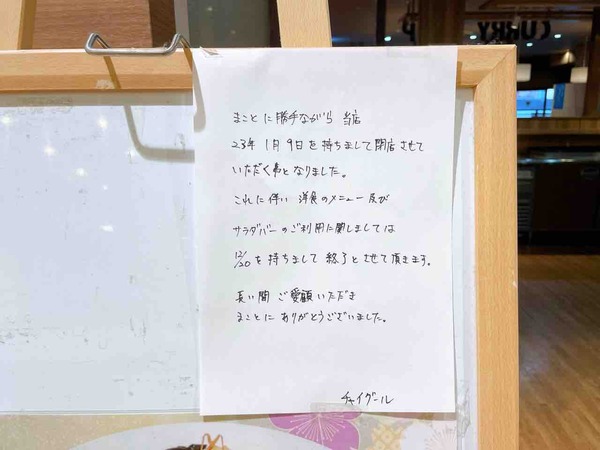 CURRY
P
まことに勝手ながら 当店
23年 1月9日を持ちまして閉店させて
いただく事となりました。
これに伴い 洋食のメニュー及び
サラダバーのご利用に関しましては
12/20を持ちまして 終了とさせて頂きます。
長い間 ご愛顧いただき
まことに ありがとうございました。
チャイグール